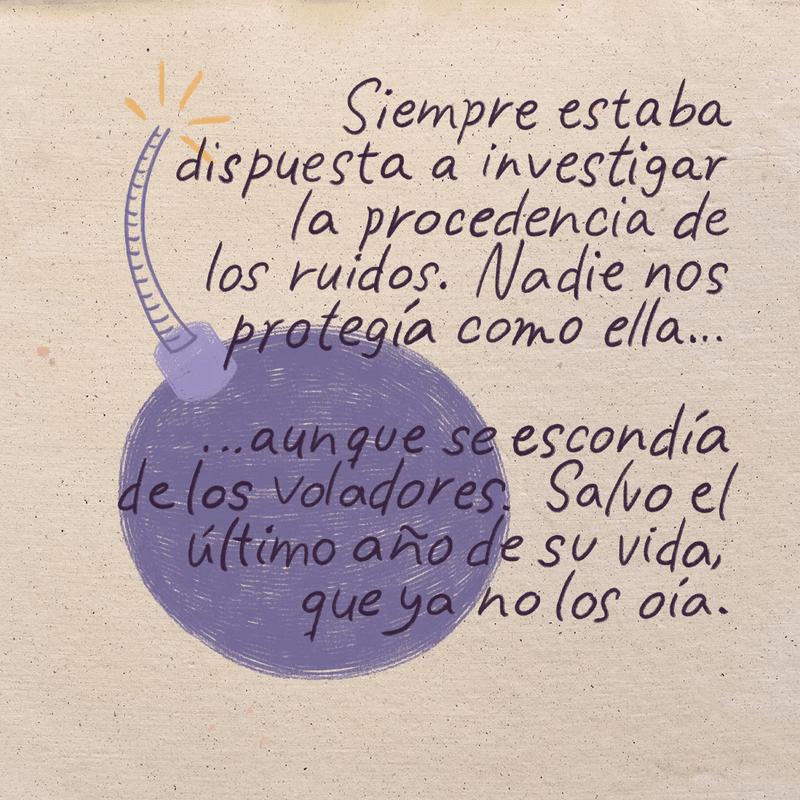 Siempre estaba
dispuesta a investigar
la procedencia de
los ruidos. Nadie nos
protegía como ella...
...aunque se escondía
de los voladores. Salvo el
último año de su vida,
que ya no los oía.